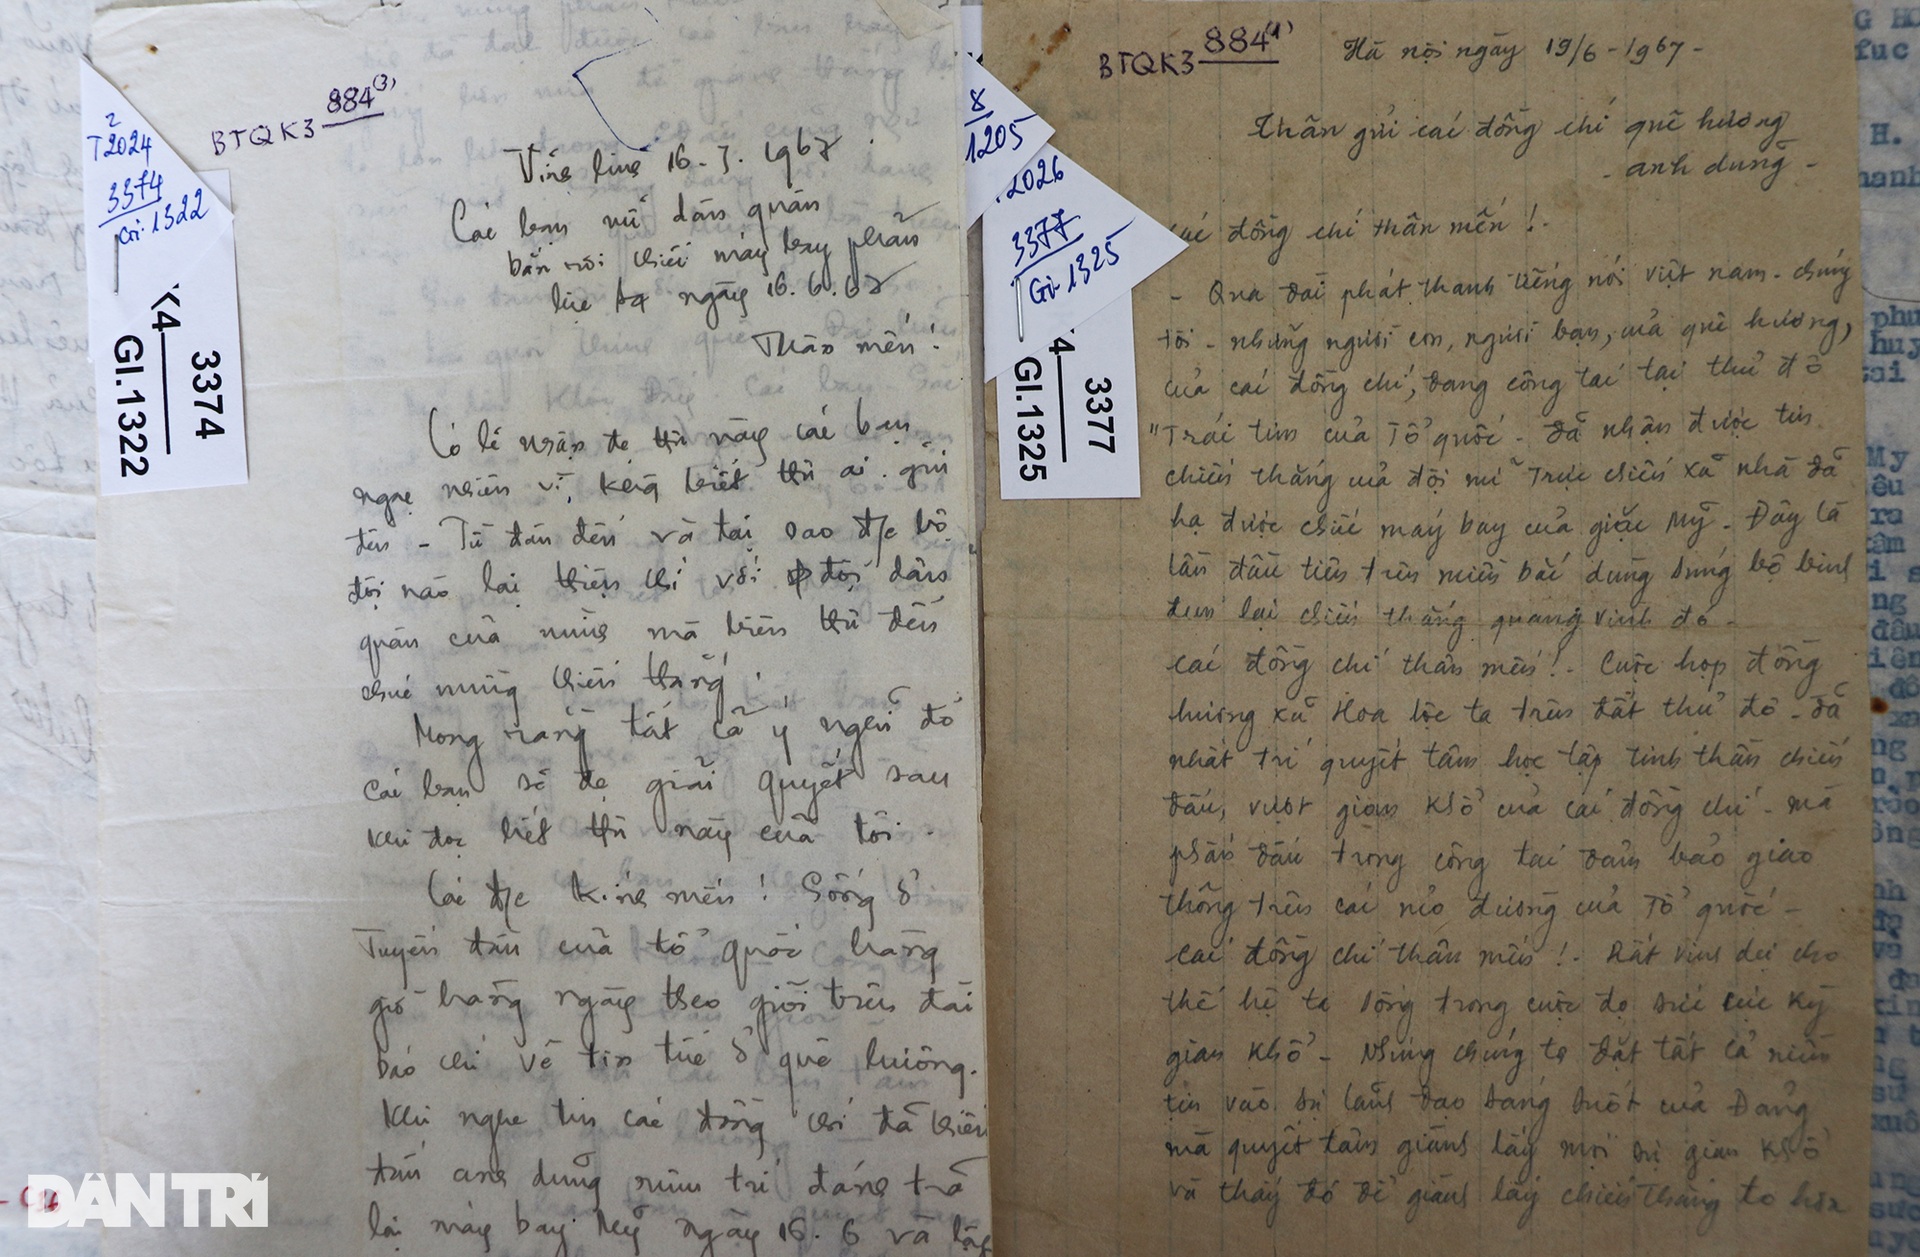 BTQK3 884(3)
T2024
3374
Gi:1322
K4 3374
GI.1322
Vĩnh linh 16-7.1967
Các bạn nữ dân quân
bắn rơi chiếc máy bay phản
lực F4 ngày 16.6.67
Thân mến!
Có lẽ nhận đc thư này các bạn
ngạc nhiên vì, không biết thư ai gửi
đến - Từ đâu đến và tại sao đ/c bộ
đội nào lại thiện chí với đội dân
quân của mình mà biên thư đến
chúc mừng chiến thắng.
Mong rằng tất cả ý nghĩ đó
các bạn sẽ đc giải quyết sau
khi đọc hết thư này của tôi.
Các đ/c kính mến! Sống ở
Tuyến đầu của tổ quốc hàng
giờ hàng ngày theo giõi trên đài
báo chí về tin tức ở quê hương.
Khi nghe tin các đồng chí đã chiến
đấu anh dũng mưu trí đánh trả
lại máy bay Mỹ ngày 16.6 và lập
8
1205
.2026
3377
Gi:1325
4 3377
GI.1325
BTQK3 884(1)
Hà nội ngày 19/6-1967-
Thân gửi các đồng chí quê hương
- anh dũng -
các đồng chí thân mến!-
- Qua đài phát thanh tiếng nói việt nam - chúng
tôi - những người con, người bạn, của quê hương,
của các đồng chí, đang công tác tại thủ đô
"Trái tim của Tổ quốc - đã nhận được tin
chiến thắng của đội nữ trực chiến xã nhà đã
hạ được chiếc máy bay của giặc Mỹ - Đây là
lần đầu tiên trên miền bắc dùng súng bộ binh
đem lại chiến thắng quang vinh đó -
các đồng chí thân mến!- Cuộc họp đồng
hương xã Hoa lộc ta trên đất thủ đô - đã
nhất trí quyết tâm học tập tinh thần chiến
đấu, vượt gian khổ của các đồng chí - mà
phấn đấu trong công tác đảm bảo giao
thông trên các nẻo đường của Tổ quốc -
các đồng chí thân mến!- Rất vinh dự cho
thế hệ ta sống trong cuộc đọ sức cực kỳ
gian khổ - Nhưng chúng ta đặt tất cả niềm
tin vào sự lãnh đạo sáng suốt của Đảng
mà quyết tâm giành lấy mọi sự gian khổ
và thay đó để giành lấy chiến thắng to lớn
DÂN TRÍ